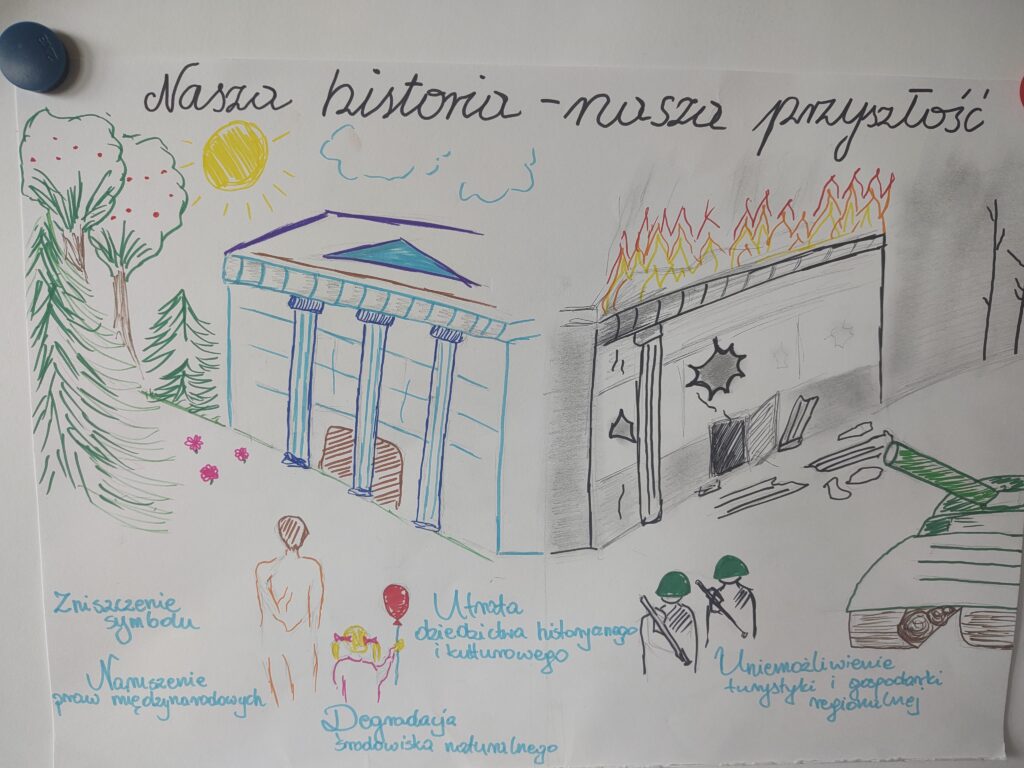 Nasza historia - nasza przyszłość
Zniszczenie
symbolu
Naruszenie
praw międzynarodowych
Utrata
dziedzictwa historycznego
i kulturowego
Degradacja
środowiska naturalnego
Uniemożliwienie
turystyki i gospodarki
regionalnej